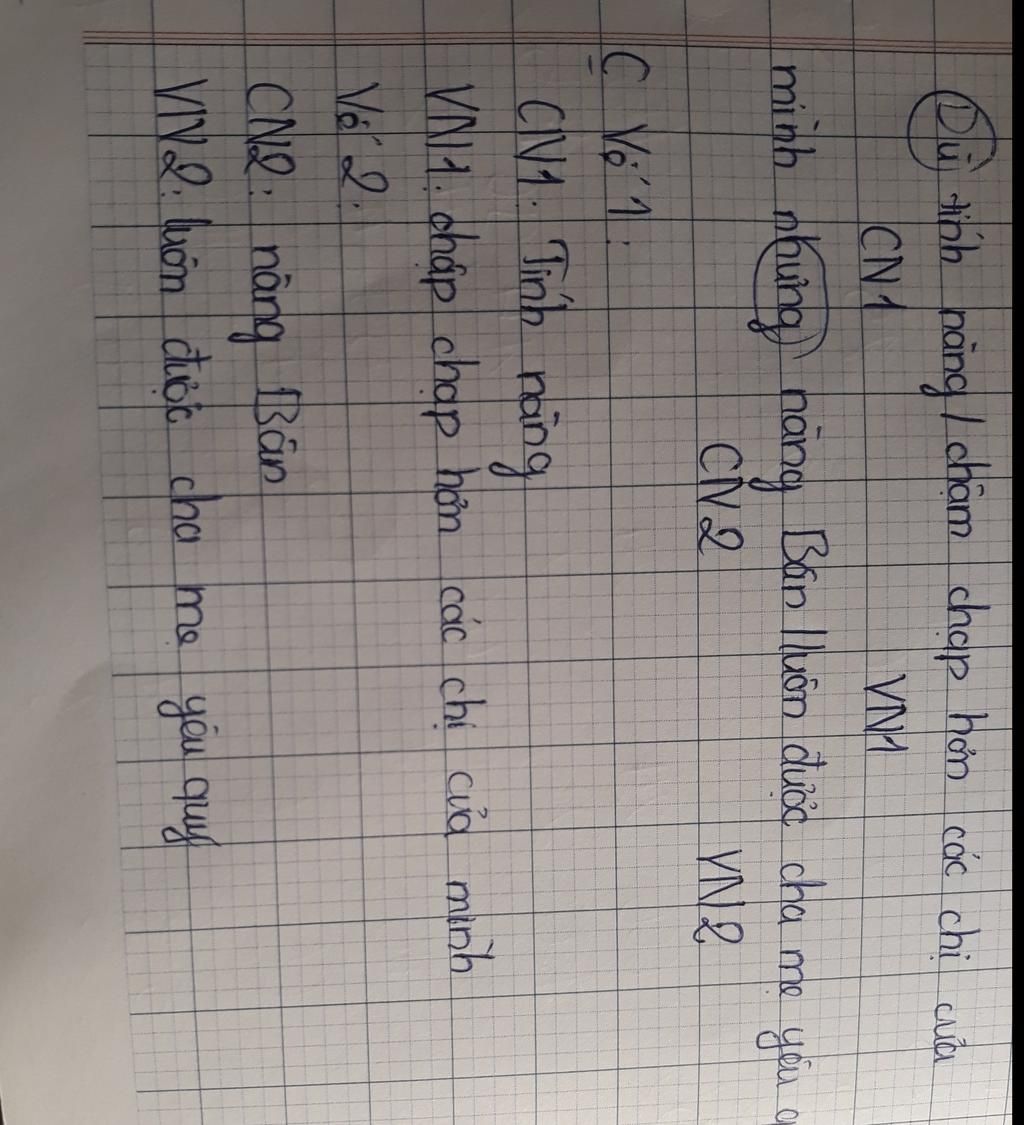 Dù tính nàng / chậm chạp hơn các chị của
CN1 VN1
mình nhưng nàng Bân / luôn được cha mẹ yêu
CN2 VN2
C Vế 1:
CN1: Tính nàng
VN1: chập chạp hơn các chị của mình
Vế 2:
CN2: nàng Bân
VN2: luôn được cha mẹ yêu quý